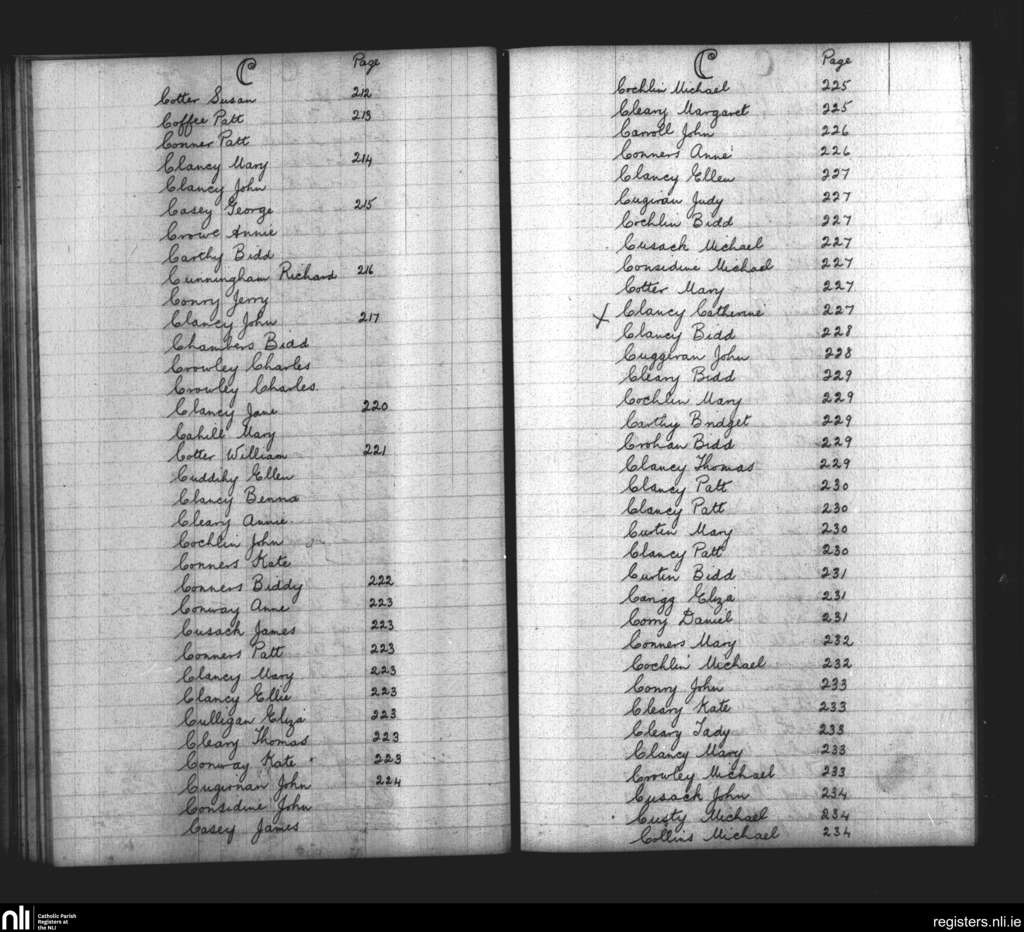 C Page
Cotter Susan 212
Coffee Patt 213
Conner Patt
Clancy Mary 214
Clancy John
Casey George 215
Crowe Annie
Carthy Bidd
Cunningham Richard 216
Conry Jerry
Clancy John 217
Chambers Bidd
Crowley Charles
Crowley Charles
Clancy Jane 220
Cahill Mary
Cotter William 221
Cuddihy Ellen
Clancy Benna
Cleary Annie
Cochlin John
Conners Kate
Conners Biddy 222
Conway Anne 223
Cusack James 223
Conners Patt 223
Clancy Mary 223
Clancy Ellie 223
Culligan Eliza 223
Cleary Thomas 223
Conway Kate 223
Cugirnan John 224
Considine John
Casey James
C Page
Cochlin Michael 225
Cleary Margaret 225
Carroll John 226
Conners Anne 226
Clancy Ellen 227
Cugiran Judy 227
Cochlin Bidd 227
Cusack Michael 227
Considine Michael 227
Cotter Mary 227
x Clancy Catherine 227
Clancy Bidd 228
Cuggeran John 228
Cleary Bidd 229
Cochlin Mary 229
Carthy Bridget 229
Crohan Bidd 229
Clancy Thomas 229
Clancy Patt 230
Clancy Patt 230
Curtin Mary 230
Clancy Patt 230
Curtin Bidd 231
Cangg Eliza 231
Corry Daniel 231
Conners Mary 232
Cochlin Michael 232
Conry John 233
Cleary Kate 233
Cleary Tady 233
Clancy Mary 233
Crowley Michael 233
Cusack John 234
Custy Michael 234
Collins Michael 234
nli Catholic Parish
Registers at
the NLI
registers.nli.ie